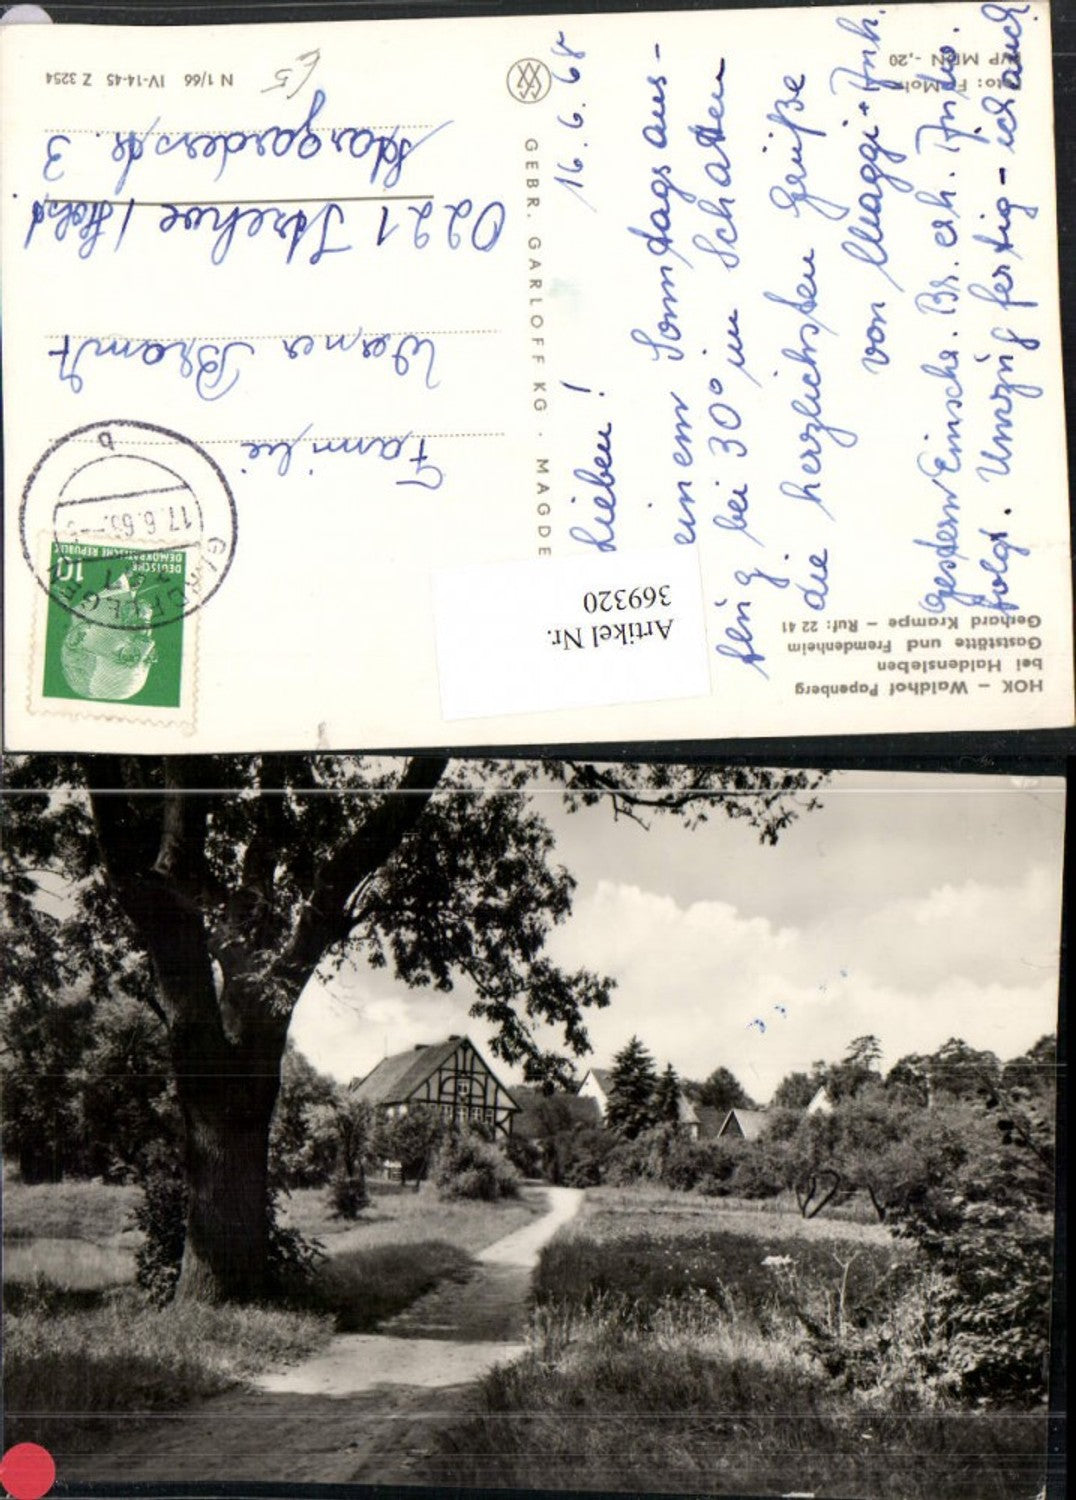 HOK – Waldhof Papenberg
bei Haldensleben
Gaststätte und Fremdenheim
Gerhard Krampe – Ruf: 22 41
16. 6. 68
Lieben!
einen Sonntagsaus-
flug bei 30° im Schatten
die herzlichsten Grüße
von Maggi + Anh.
gestern Einsche. Br. erh.
folgt. Umzug fertig – ich auch
Artikel Nr.
369320
GEBR. GARLOFF KG · MAGDE
DEUTSCHE
DEMOKRATISCHE REPUBLIK
10
17.6.68
b
Familie
Werner Brandt
0221 Itzehoe / Holst.
Stargarderstr. 3
Foto: F. Mohr
EVP MDN -,20
N 1/66 IV-14-45 Z 3254